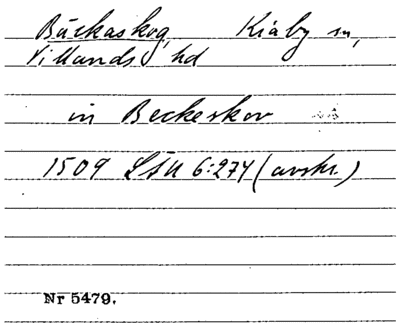 Bäckaskog, Kiaby sn,
Villands hd
in Beckeskov
1509 LSU 6:274 (avskr.)
Nr 5479.